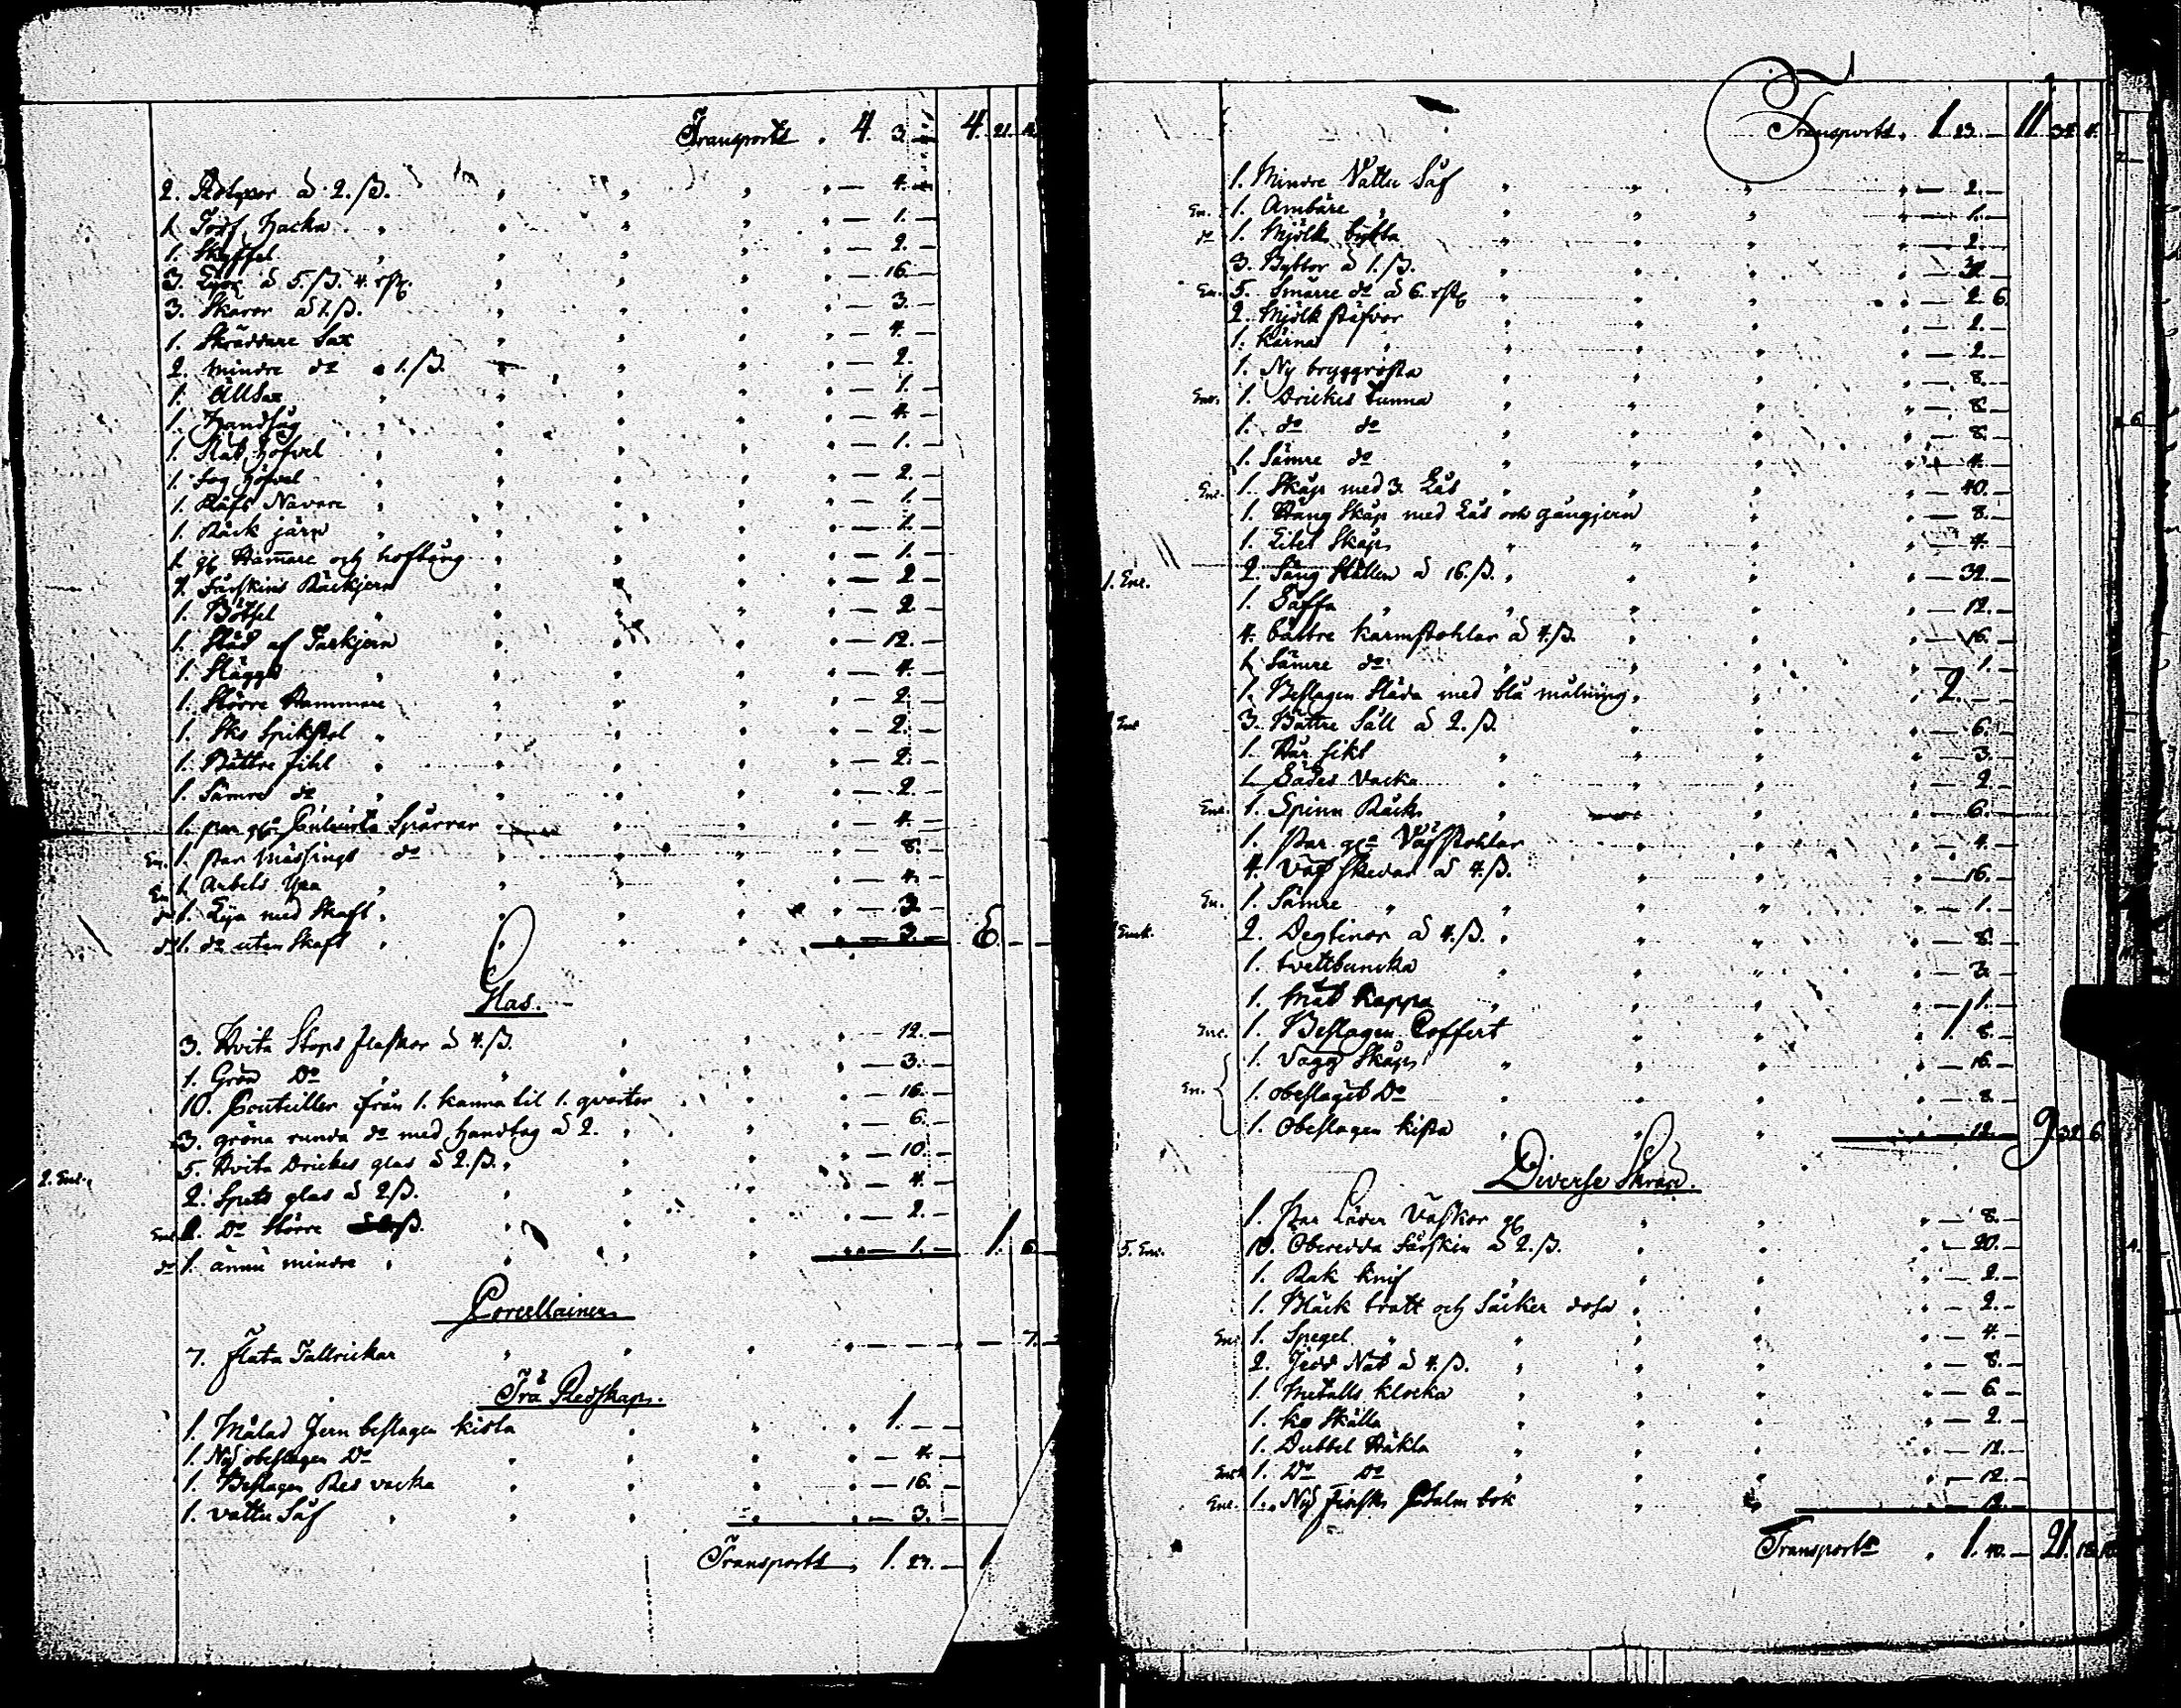 Transport . 4. 3. — 4. 21.
2. Rotyxor à 2. ß. — 4. —
1. Torf Hacka — 1. —
1. Skyffel — 2. —
3. Lyor à 5. ß. 4. rst. — 16. —
3. Skäror à 1. ß. — 3. —
1. Skräddare Sax — 4. —
2. mindre do à 1. ß. — 2. —
1. Ullsax — 1. —
1. Handsåg — 4. —
1. Slät Höfvel — 1. —
1. Fog höfvel — 2. —
1. Räfs Navare — 1. —
1. Bäck järn — 1. —
1. gl Hammare och hoftång — 1. —
1. Fårskins Räckjern — 2 —
1. Bötsel — 2. —
1. Städ af Tackjern — 12. —
1. Slägga — 4. —
1. Större Hammare — 2. —
1. Sko Spikstol — 2. —
1. Bättre fihl — 2. —
1. Sämre do — 2. —
1. par Sporrar — 4. —
En. 1. par Mässings do — 8. —
En 1. Arbets Yxa — 4. —
do 1. Lya med Skaft — 3. —
do 1. do utan Skaft — 3. — 6. — —
Glas.
3. Hvita Stops flaskor à 4. ß. — 12. —
1. Grön Do — 3. —
10. Bouteiller ifrån 1. kanna til 1. qvarter — 16. —
3. gröna runda do med Handtag à 2. — 6. —
5. Hvita Drickes glas à 2. ß. — 10. —
2. Enl. 2. Spets glas à 2 ß. — 4. —
Enl 1. Do Större — 2. —
do 1. ännu mindre — 1. — 1. 6. —
Porcellainer
7. flata Tallrickar — — 7. —
Trä Redskap.
1. Målad Jern beslagen kista 1. — —
1. Ny obeslagen Do — 4. —
1. Beslagen Res vacka — 16. —
1. vattu Så — 3. —
Transport . 1. 23. — 1
Transport . 1. 23. — 11. 34. 4.
1. Mindre Vattu Så — 2. —
En. 1. Ambare — 1. —
do 1. Mjölk bytta — 2. —
3. Byttor à 1. ß. — 3. —
En. 5. Smärre do à 6. rst — 2. 6.
2. Mjölk stäfvor — 2. —
1. Kärna — 2. —
1. Ny bryggrosta — 8. —
Enr. 1. Drickes tunna — 8. —
1. do do — 8. —
1. Sämre do — 4. —
Enr. 1. Skåp med 3. Lås — 40. —
1. Häng Skåp med Lås och gångjern — 8. —
1. Litet Skåp — 4. —
1. Enr. 2. Säng Ställen à 16. ß. — 32. —
1. Saffa — 12. —
4. bättre karmstohlar à 4. ß. — 16. —
1. Sämre do — 1. —
1. Beslagen Släda med blå målning 2. —
Enl 3. Bättre Såll à 2. ß. — 6. —
1. Hår sikt — 3. —
1. Sädes Vacka — 2 —
Enr. 1. Spinn Råck — 6. —
1. Par Väfstohlar — 4. —
4. Väf skedar à 4. ß. — 16. —
En. 1. Sämre — 1. —
Enk. 2. Degtinor à 4. ß. — 8. —
1. tvettbuncka — 3. —
1. Mat Kappa — 1. —
Enr. 1. Beslagen Coffert 1. 8. —
1. Vägg Skåp — 16. —
En. 1. obeslaget Do — 8. —
1. Obeslagen kista — 12. — 9. 32. 6.
Diverse Skräp.
1. Par Läder Väskor — 8. —
5. Enr. 10. Oberedda Fårskin à 2. ß. — 20. —
1. Rak knif — 2. —
1. Bläck tratt och Såcker dosa — 2. —
Enr 1. Spegel — 4. —
2. Nät à 4. ß. — 8. —
1. Metalls klocka — 6. —
1. ko Skälla — 2. —
1. Dubbel Häkla — 12. —
Enk 1. Do Do — 12. —
Enr. 1. Ny Finsk Psalm bok — 12. —
Transport . 1. 40. — 21. 18.